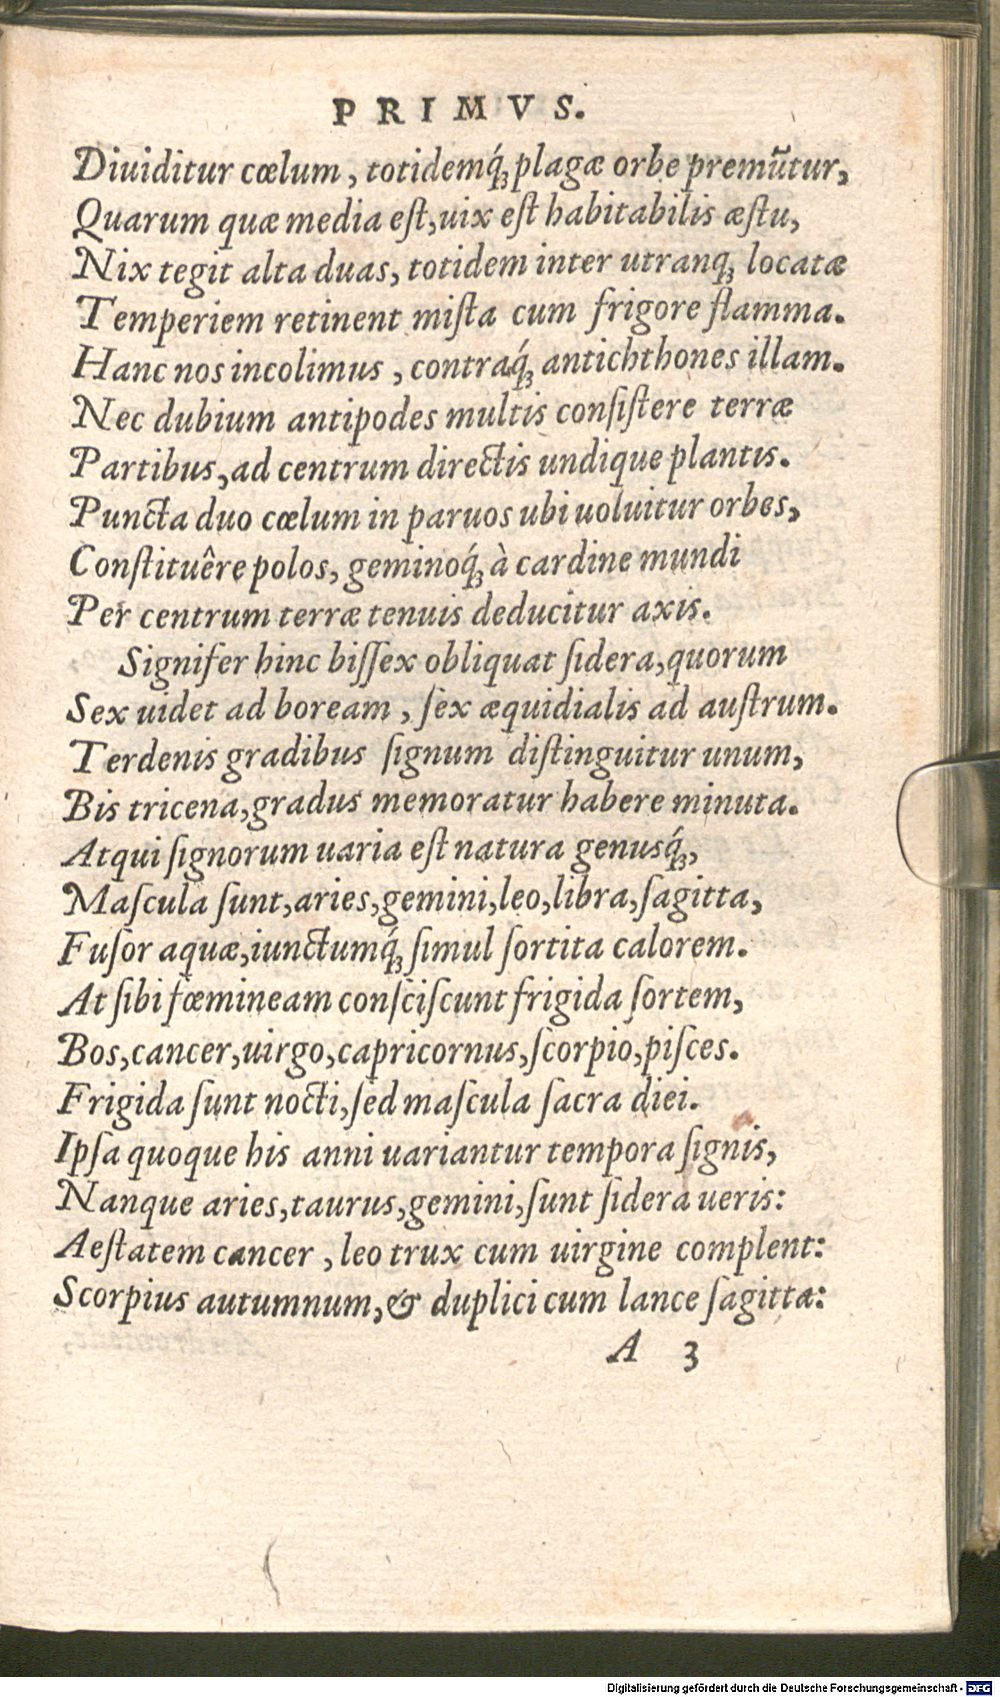 PRIMVS.
Diuiditur cœlum, totidemq́ꝫ plagæ orbe premũtur,
Quarum quæ media eſt, uix eſt habitabilis æſtu,
Nix tegit alta duas, totidem inter utranqꝫ locatæ
Temperiem retinent miſta cum frigore flamma.
Hanc nos incolimus, contraq́ꝫ antichthones illam.
Nec dubium antipodes multis conſiſtere terræ
Partibus, ad centrum directis undique plantis.
Puncta duo cœlum in paruos ubi uoluitur orbes,
Conſtituêre polos, geminoq́ꝫ à cardine mundi
Per centrum terræ tenuis deducitur axis.
Signifer hinc biſſex obliquat ſidera, quorum
Sex uidet ad boream, ſex æquidialis ad auſtrum.
Terdenis gradibus ſignum diſtinguitur unum,
Bis tricena, gradus memoratur habere minuta.
Atqui ſignorum uaria eſt natura genusq́ꝫ,
Maſcula ſunt, aries, gemini, leo, libra, ſagitta,
Fuſor aquæ, iunctumq́ꝫ ſimul ſortita calorem.
At ſibi fœmineam conſciſcunt frigida ſortem,
Bos, cancer, uirgo, capricornus, ſcorpio, piſces.
Frigida ſunt nocti, ſed maſcula ſacra diei.
Ipſa quoque his anni uariantur tempora ſignis,
Nanque aries, taurus, gemini, ſunt ſidera ueris:
Aeſtatem cancer, leo trux cum uirgine complent:
Scorpius autumnum, & duplici cum lance ſagitta:
A 3
Digitalisierung gefördert durch die Deutsche Forschungsgemeinschaft - DFG